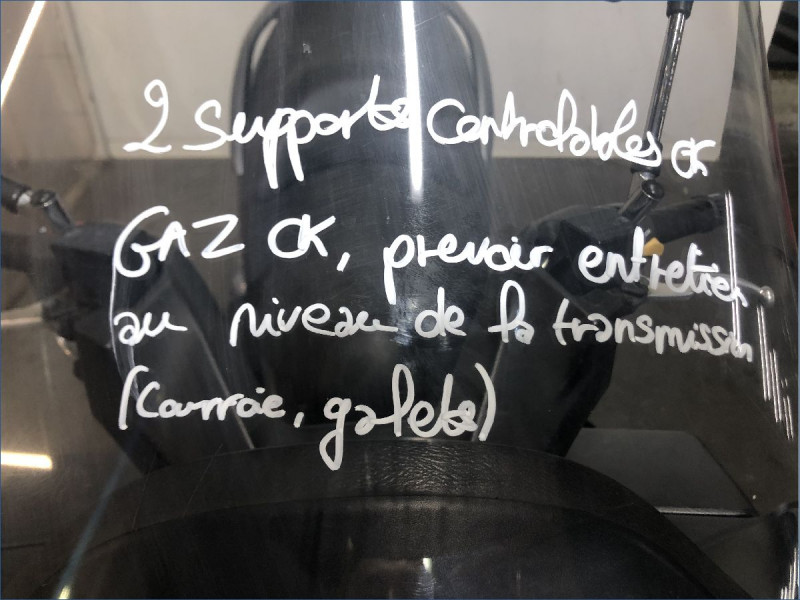 2 supports Controlables OK
GAZ OK, prevoir entretien
au niveau de la transmission
(Courroie, galets)